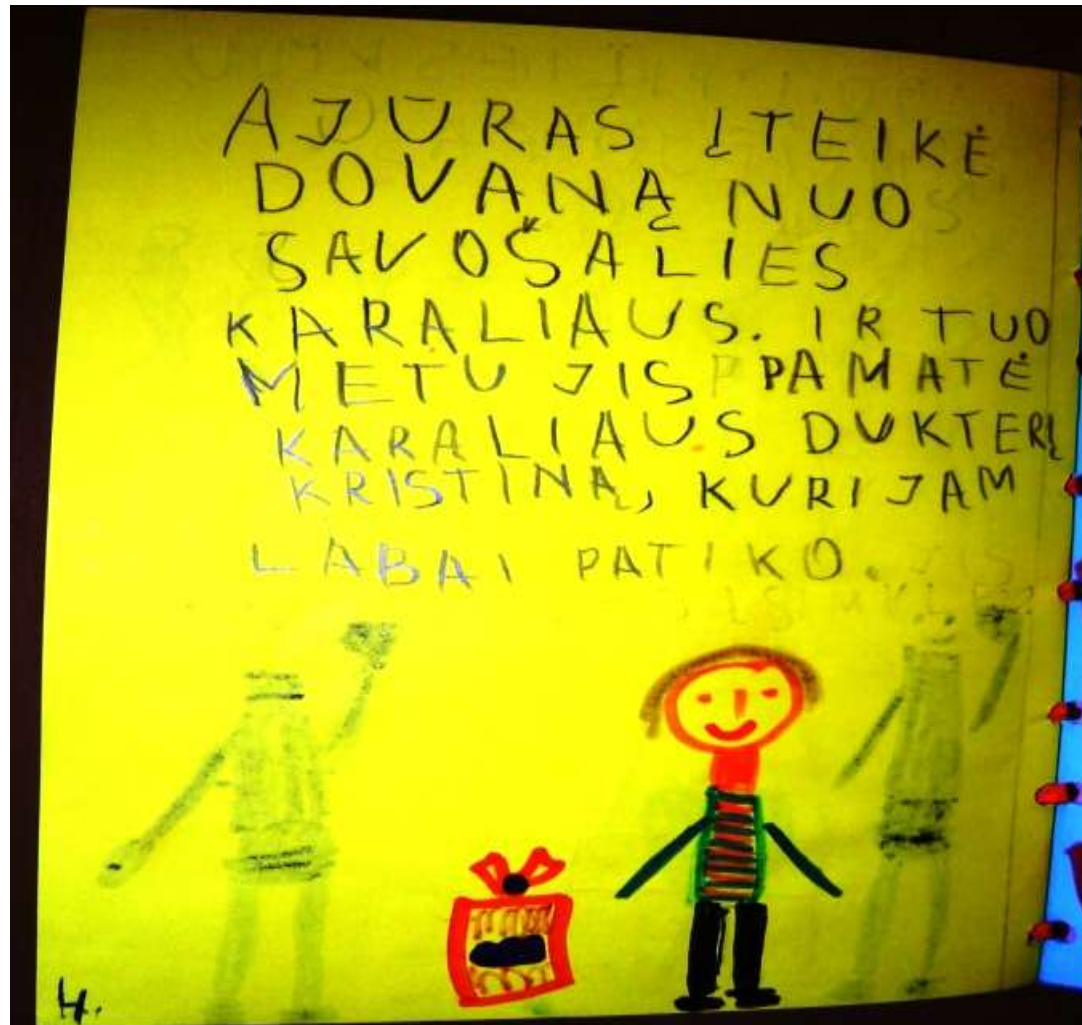 AJŪRAS ĮTEIKĖ
DOVANĄ NUO
SAVO ŠALIES
KARALIAUS. IR TUO
METU JIS PAMATĖ
KARALIAUS DUKTERĮ
KRISTINĄ, KURI JAM
LABAI PATIKO.
4.